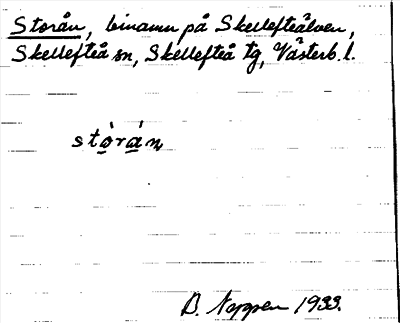 Storån, binamn på Skellefteälven,
Skellefteå sn, Skellefteå tg, Västerb. l.
stòrán
B. 1933.